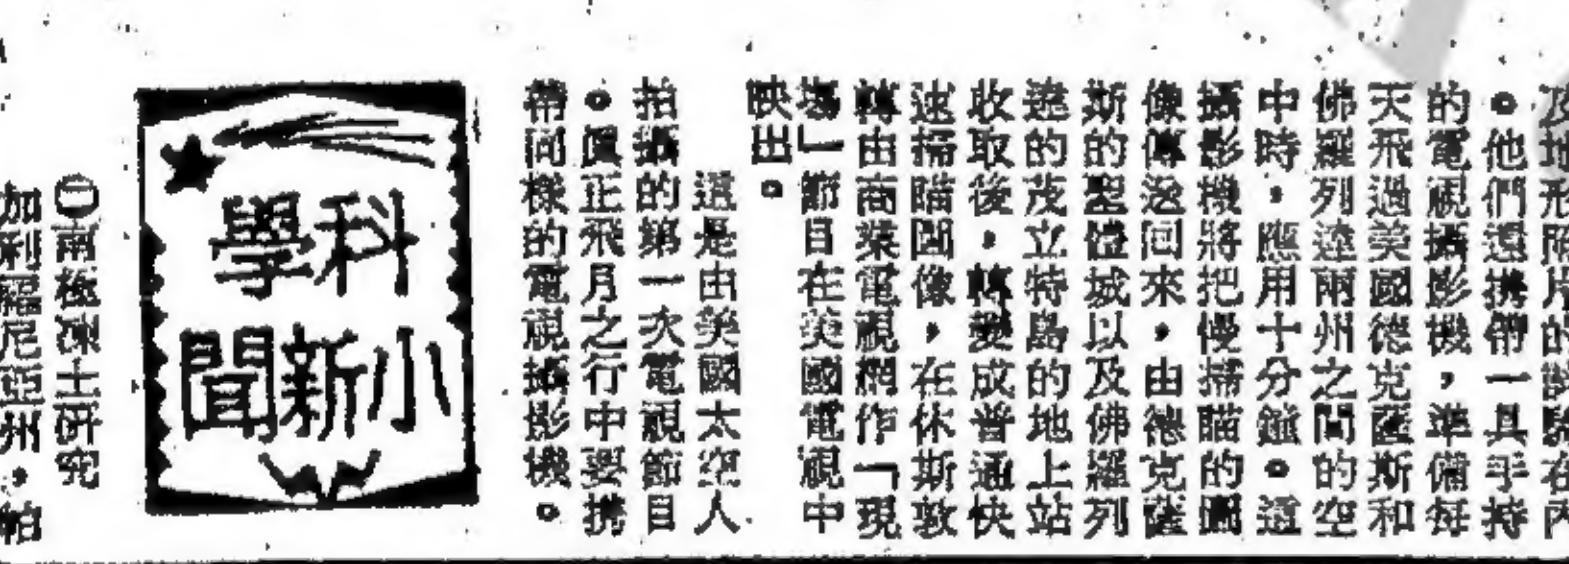 及地形照片的試驗在內
。他們還携帶一具手持
的電視攝影機，準備每
天飛過美國德克薩斯和
佛羅列達兩州之間的空
中時，應用十分鐘。這
攝影機將把慢掃瞄的圖
像傳送回來，由德克薩
斯的聖體城以及佛羅列
達的茂立特島的地上站
收取後，轉變成普通快
速掃瞄圖像，在休斯敦
轉由商業電視網作「現
場」節目在美國電視中
映出。
這是由美國太空人
拍攝的第一次電視節目
。眞正飛月之行中要携
帶同樣的電視攝影機。
科學
小新聞
㊀南極凍土研究
加利福尼亞州，帕